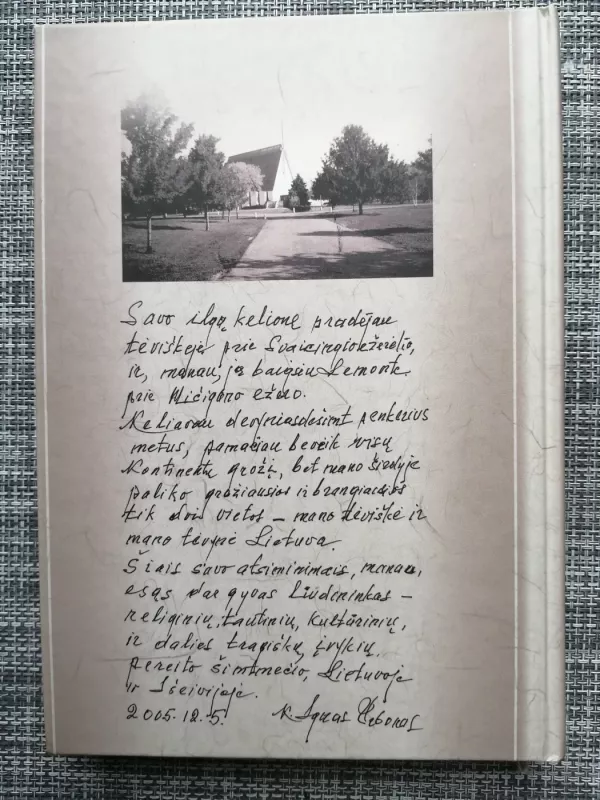 Savo ilgą kelionę pradėjau
tėviškėje, prie Svaicingio ežerėlio,
ir, manau, ją baigsiu Lemonte
prie Mičigano ežero.
Keliavau devyniasdešimt penkerius
metus, pamačiau beveik visų
kontinentų grožį, bet mano širdyje
paliko gražiausios ir brangiausios
tik dvi vietos – mano tėviškė ir
mano tėvynė Lietuva.
Šiais savo atsiminimais, manau,
esąs dar gyvas liudininkas –
religinių, tautinių, kultūrinių,
ir dalies tragiškų įvykių
pereito šimtmečio, Lietuvoje
ir Išeivijoje.
2005.12.5. K Ignas Urbonas